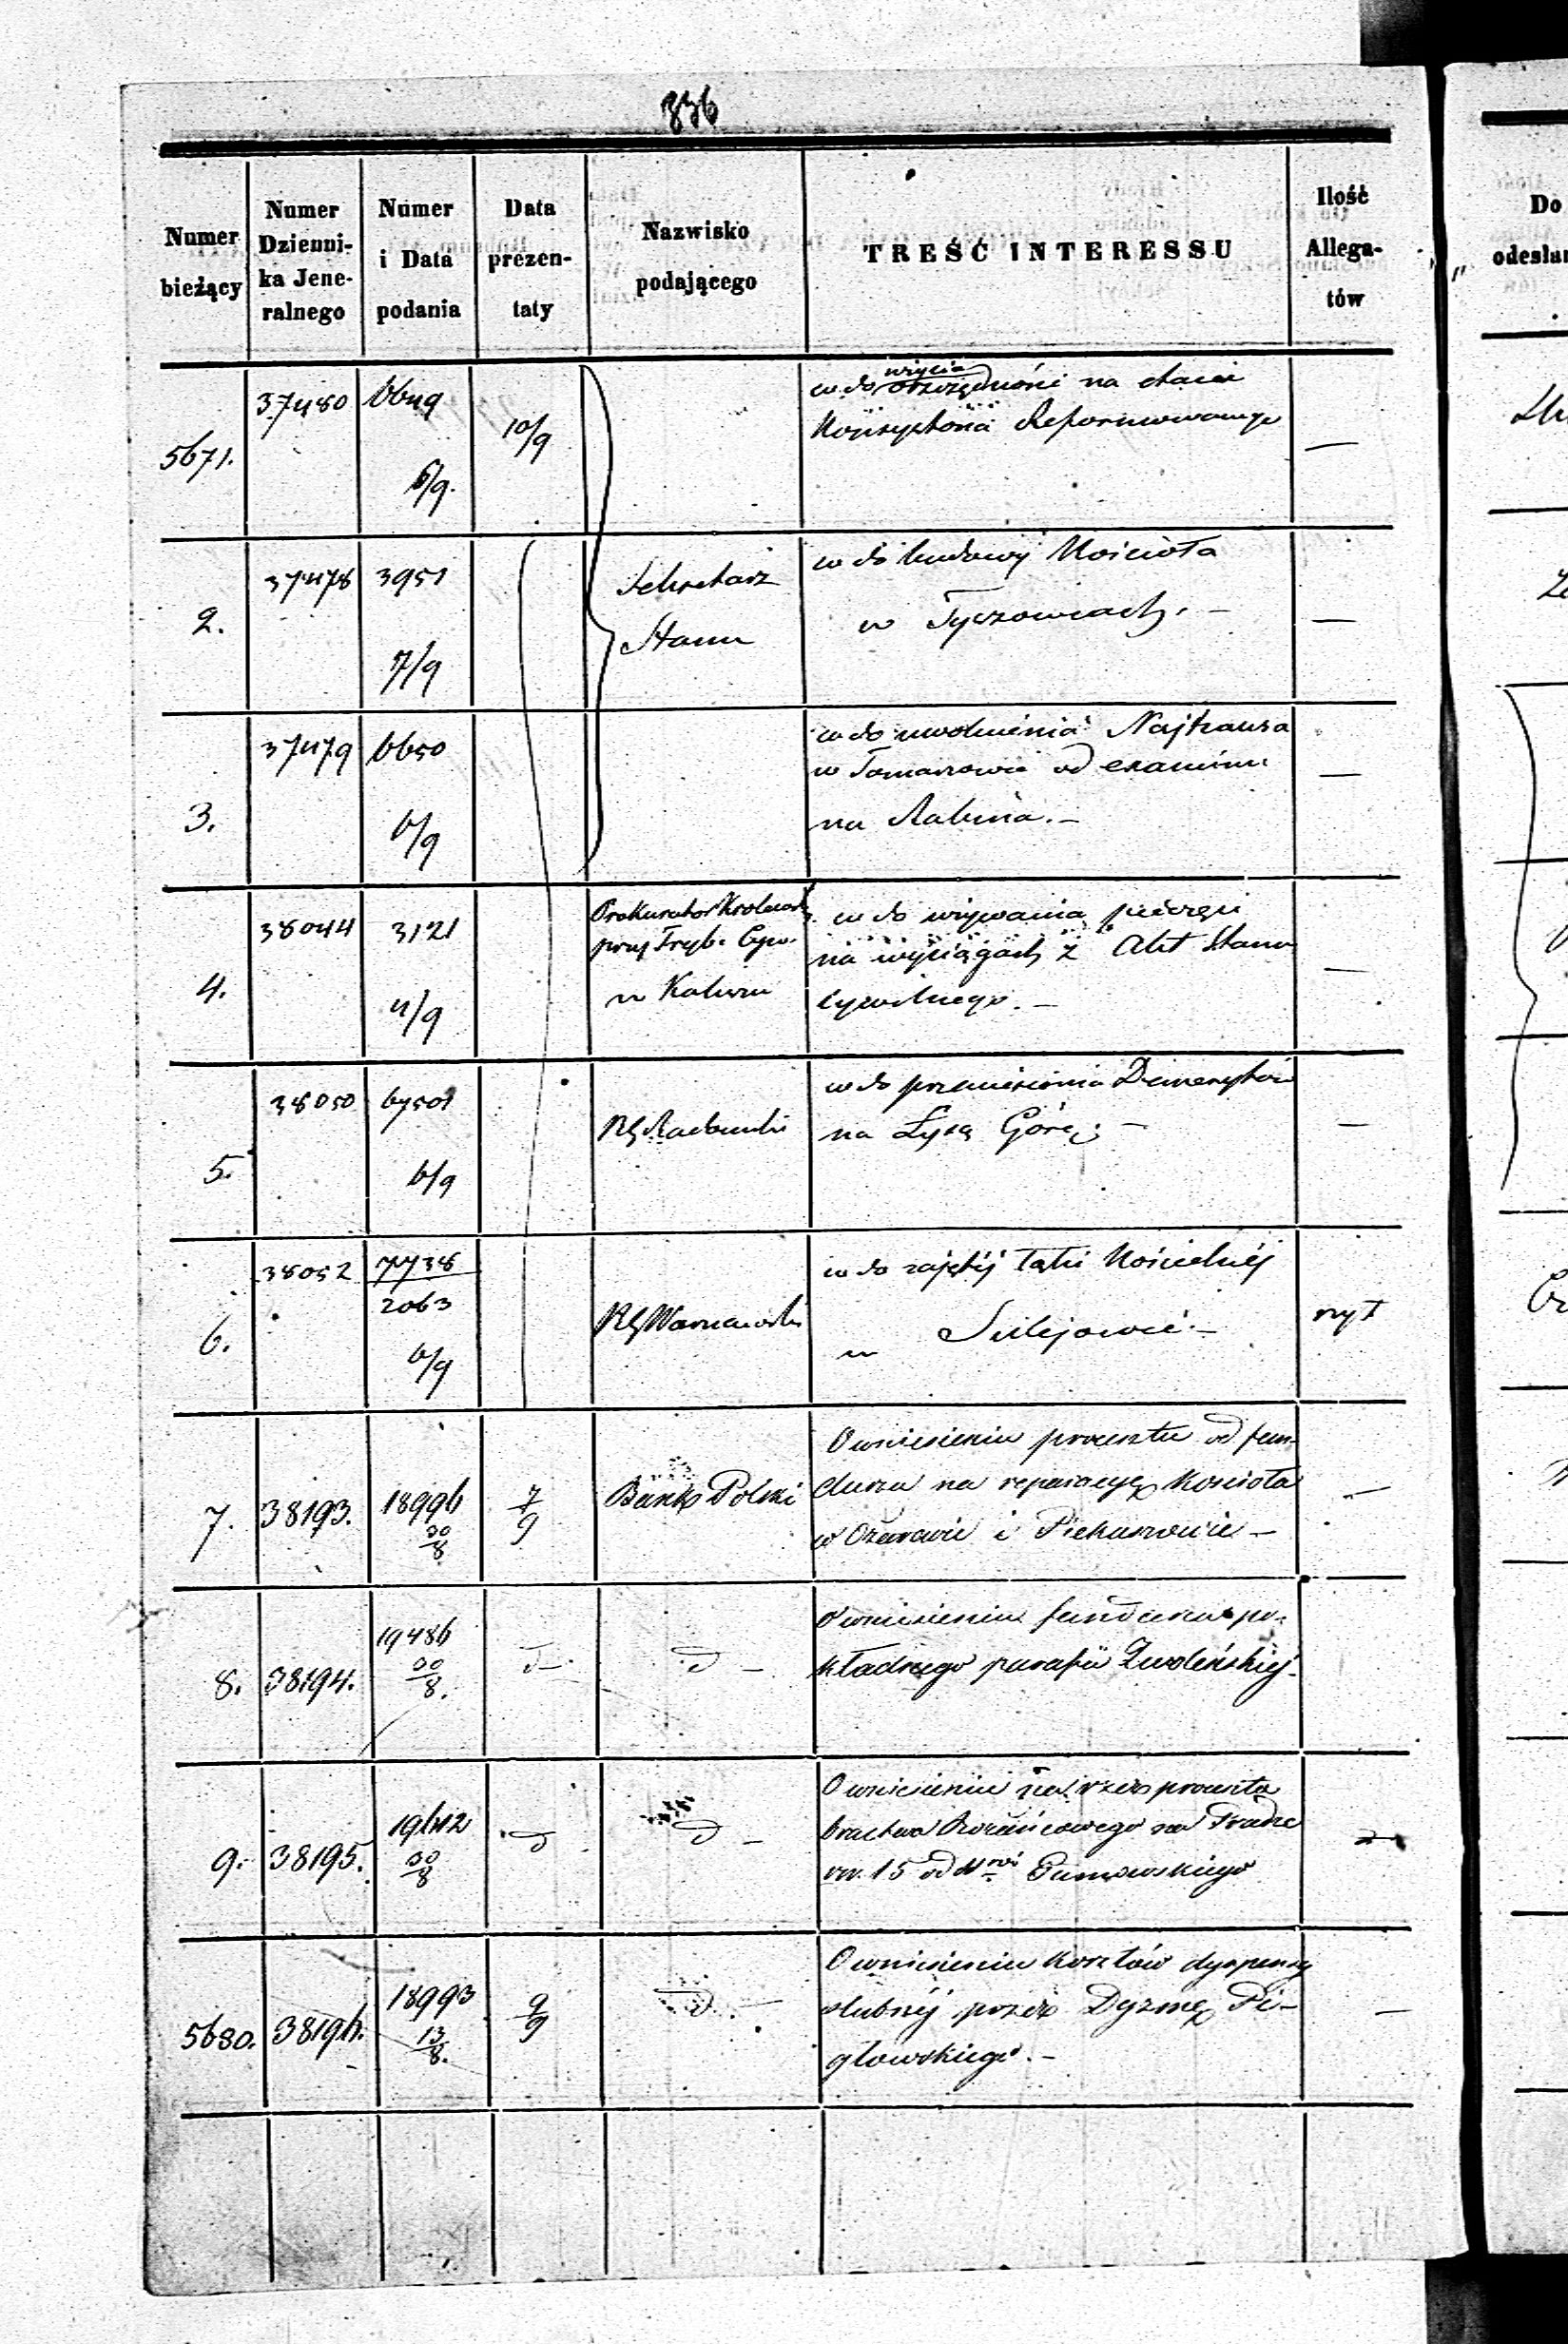 836
Numer
bieżący
Numer
Dzienni-
ka Jene-
ralnego
Numer
i Data
podania
Data
prezen-
taty
Nazwisko
podającego
TREŚĆ INTERESSU
Ilość
Allega-
tów
5671.
37480
6649
6/9.
10/9
w do oszczędności na etacie
użycia
Konsystorza Reformowanego
—
2.
37478
3951
7/9
Sekretarz
Stanu
w do budowy Kościoła
w Tyszowcach. —
—
3.
37479
6650
6/9
w do uwolnienia Najhausa
w Tomaszowie od examinu
na Rabina. —
—
4.
38044
3121
4/9
Prokurator Królewski
przy Tryb. Cyw.
w Kaliszu
w do używania pieczęci
na wyciągach z Akt Stanu
Cywilnego. —
—
5.
38050
67501
6/9
RG Radomski
w do przeniesienia Demerytów
na Łysą Górę. —
—
6.
38052
7738
2063
6/9
RG Warszawski
w do zajętej łąki Kościelnej
w Sulejowie. —
szyt
7.
38193.
18996
30/8
7/9
Bank Polski
O wniesieniu procentu od fun-
duszu na reparacyę Kościoła
w Ożarowie i Piekuszowie —
—
8.
38194.
19486
30/8.
d —
d —
O wniesieniu funduszu po-
kładnego parafii Zwoleńskiej.
9.
38195.
19642
30/8
d
d —
O wniesieniu na rzecz procentu
bractwa Rożańcowego na Pradze
rsr. 15 od
5680.
38196.
18993
13/8.
9/9
d. —
O wniesieniu kosztów dyspensy
ślubnej przez Dyzmę Pi-
głowskiego. —
—
Do
odesłan